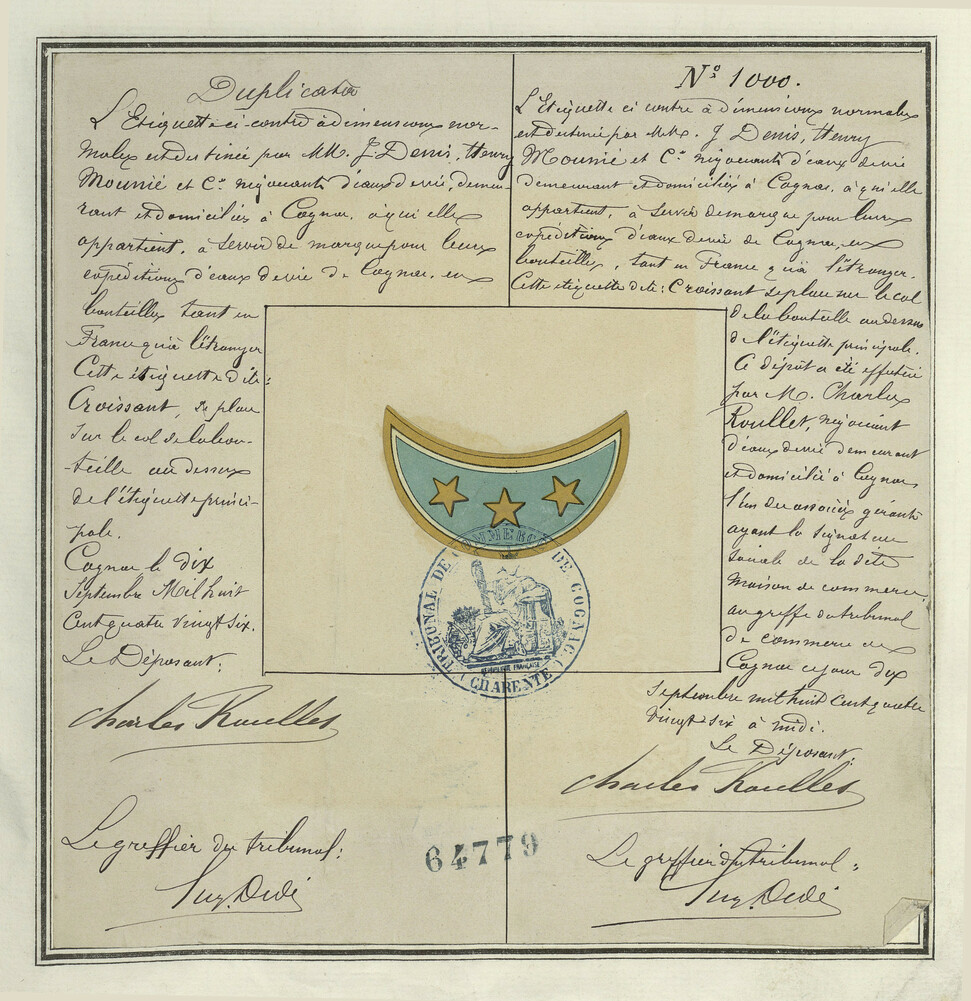 Duplicata
L'Etiquette ci-contre à dimensions nor-
males est destinée par MM. J. Denis, Henry
Mounié et Cie négociants d'eaux de vie, demeu-
rant et domiciliés à Cognac, à qui elle
appartient, à servir de marque pour leurs
expéditions d'eaux de vie de Cognac, en
bouteilles tant en
France qu'à l'étranger
Cette étiquette dite:
Croissant, se place
sur le col de la bou-
-teille au dessus
de l'étiquette princi-
pale.
Cognac le dix
Septembre Mil huit
Cent quatre vingt six.
Le Déposant:
Charles Roullet
Le greffier du tribunal:
No 1000.
L'Etiquette ci contre à dimensions normales
est destinée par MM. J. Denis, Henry
Mounié et Cie négociants d'eaux de vie
demeurant et domiciliés à Cognac, à qui elle
appartient, à servir de marque pour leurs
expéditions d'eaux de vie de Cognac, en
bouteilles, tant en France qu'à l'étranger.
Cette étiquette dite: Croissant se place sur le col
de la bouteille au dessus
de l'étiquette principale.
Ce dépôt a été effectué
par M. Charles
Roullet, négociant
d'eaux de vie demeurant
et domicilié à Cognac
l'un des associés gérants
ayant la signature
sociale de la dite
Maison de commerce,
au greffe du tribunal
de commerce de
Cognac ce jour dix
Septembre mil huit cent quatre
vingt six à midi.
Le Déposant:
Charles Roullet
Le greffier du tribunal:
TRIBUNAL DE COMMERCE DE COGNAC
REPUBLIQUE FRANÇAISE
(CHARENTE)
64779